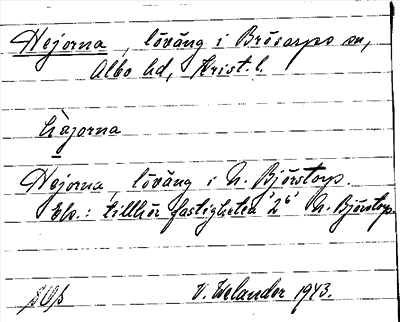 Hejorna, löväng i Brösarps sn,
Albo hd, Krist. l.
Hejorna, löväng i N. Björstorp.
Ek.: tillhör fastigheten '2⁶' N. Björstorp.
V. Welander 1943.